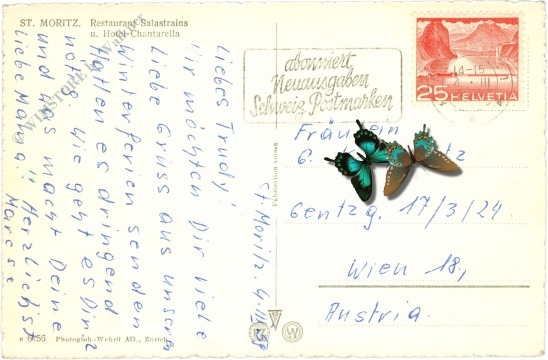 ST. MORITZ. Restaurant Salastrains
u. Hotel-Chantarella
abonniert
Neuausgaben
Schweiz. Postmarken
14-15
III
25 HELVETIA
St. Moritz. 4. III.
Liebes Trudy!
Wir möchten Dir liebe
Liebe Grüss aus unseren
Winterferien senden
Hatten es dringend
nötig. Wie geht es Dir
und was macht Deine
liebe Mama? Herzlichst
Marese
Fräulein
G.
Gentzg. 17/3/24.
Wien 18,
Austria.
Fabrication suisse
e 6756 Photoglob-Wehrli AG., Zürich